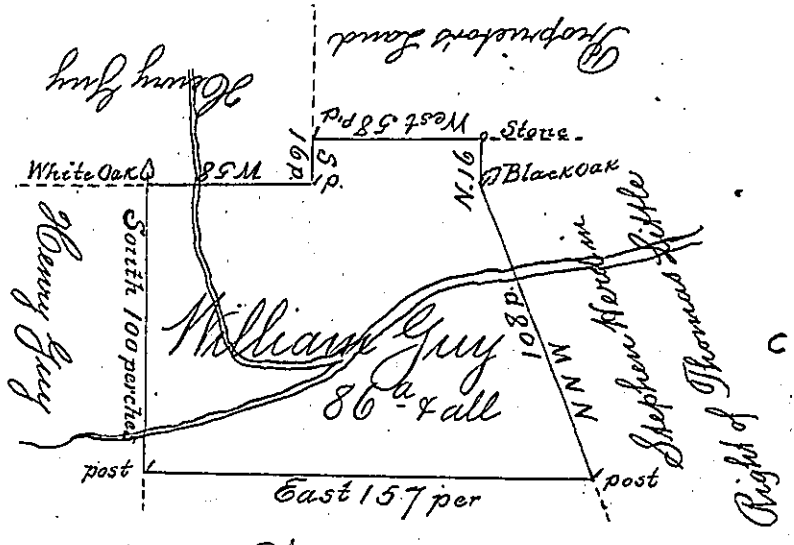 Proprietor's Land
Henry Guy
West 58 p.d
Stone
S
16 p
N.16
White Oak
W 58
p.d
Black Oak
Henry Guy
South 100 perches
William Guy
86 a & all
108 p.
NNW
Stephen Herd
Right of Thomas Little
C
post
East 157 per
post